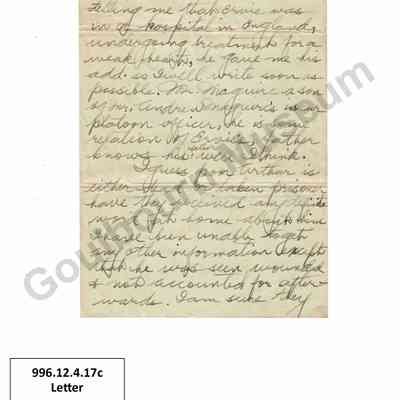 telling me that Ernie was
in a hospital in England,
undergoing treatment for a
weak heart, he gave me his
add. so I will write soon as
possible. Mr. Maguire a son
of Mr. Andre Maguire's is our
platoon officer, he is some
relation of Ernie's, Father
knows him well I think.
I guess poor Arthur is
either dead or taken prisoner
have they received any definite
word at home about him
I have been unable to get
any other information except
that he was seen wounded
& not accounted for after-
wards. I am sure they
Goulbourn Museum
996.12.4.17c
Letter